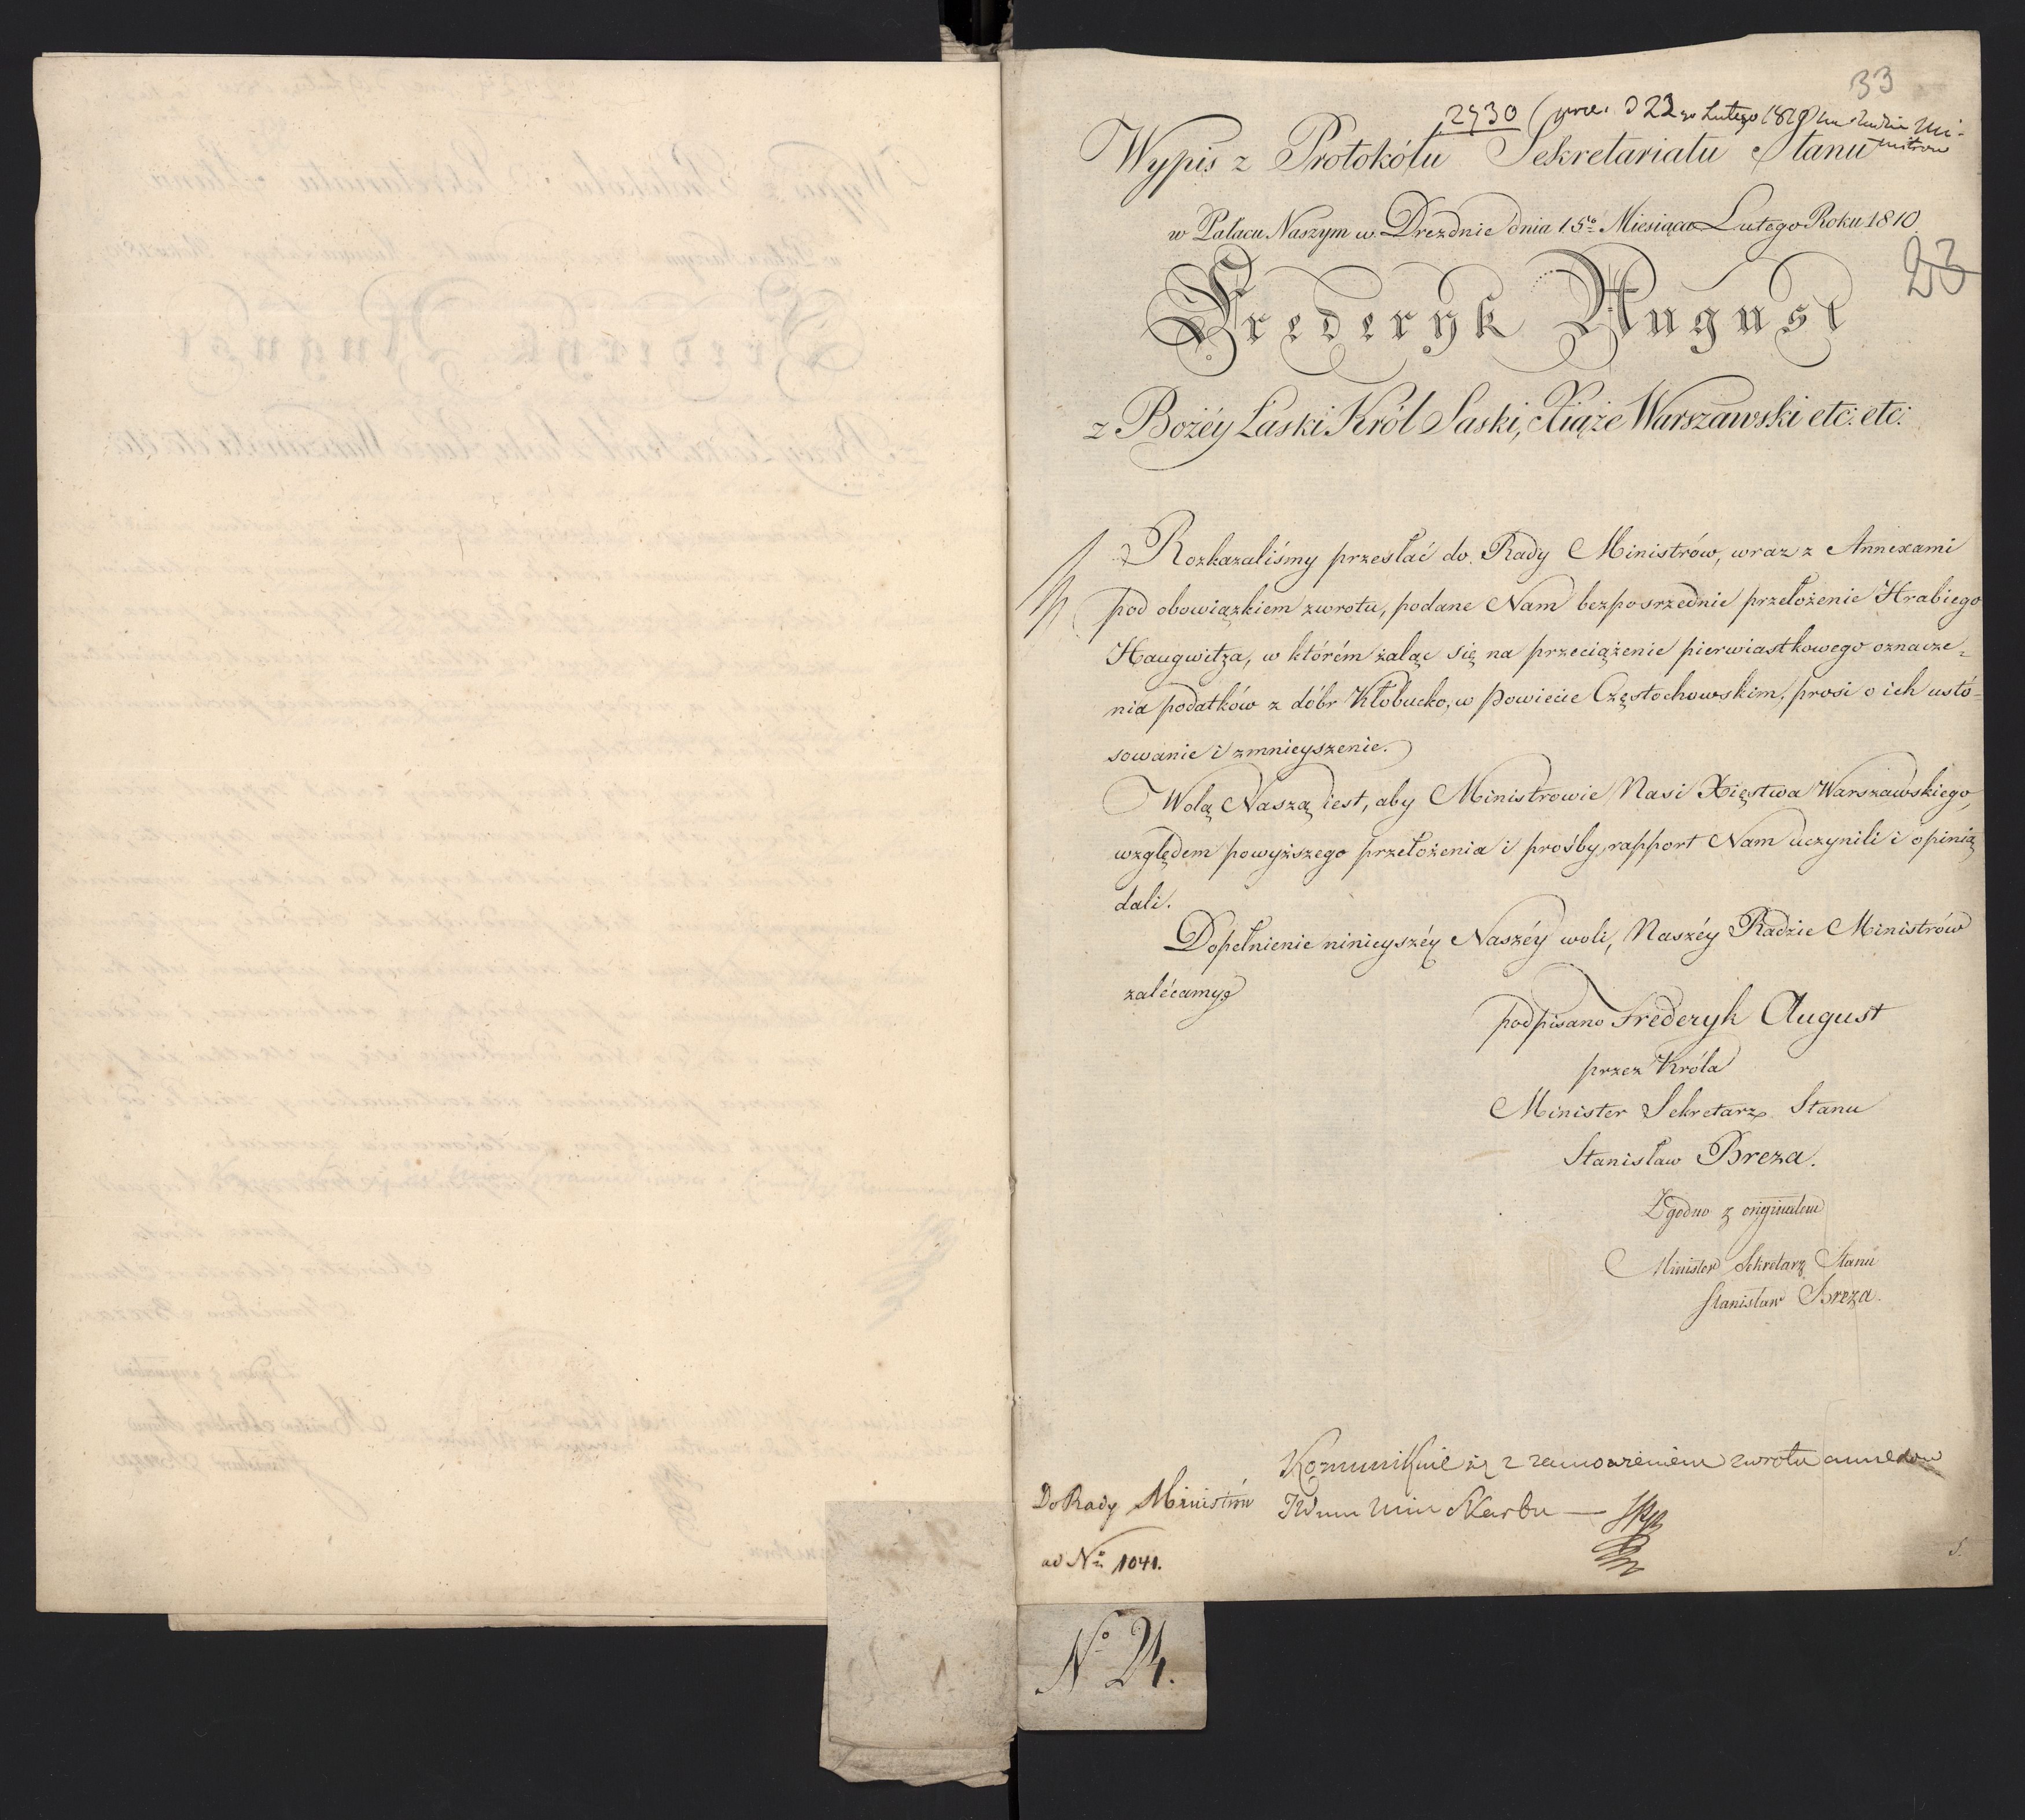 33
2930 prez. d 23go Lutego 1810 na Radzie Mi-
nistrów
Wypis z Protokółu Sekretariatu Stanu
w Pałacu Naszym w Dreźnie dnia 15o Miesiąca Lutego Roku 1810.
23
Frederyk August
z Bożéy Łaski Król Saski, Xiąże Warszawski etc: etc:
Rozkazaliśmy przesłać do Rady Ministrów, wraz z Annexami
pod obowiązkiem zwrotu, podane Nam bezposrzednie przełożenie Hrabiego
Haugwitza, w którém żaląc się na przeciążenie pierwiastkowego oznacze-
nia podatków z dóbr Kłobucko, w Powiecie Częstochowskim, prosi o ich usto-
sowanie i zmnieyszenie.
Wolą Naszą iest, aby Ministrowie Nasi Xięstwa Warszawskiego,
względem powyższego przełożenia i prośby, rapport Nam uczynili i opinią
dali.
Dopełnienie ninieyszéy Naszéy woli, Naszéy Radzie Ministrów
zalécamy.
podpisano Frederyk August
przez Króla
Minister Sekretarz Stanu
Stanisław Breza.
Zgodno z originałem
Minister Sekretarz Stanu
Stanisław Breza.
Kommunikuie się z zamówieniem zwrotu annexów
Do Rady Ministrów
JWmu Min Skarbu —
ad No 1041.
5.
No 24.